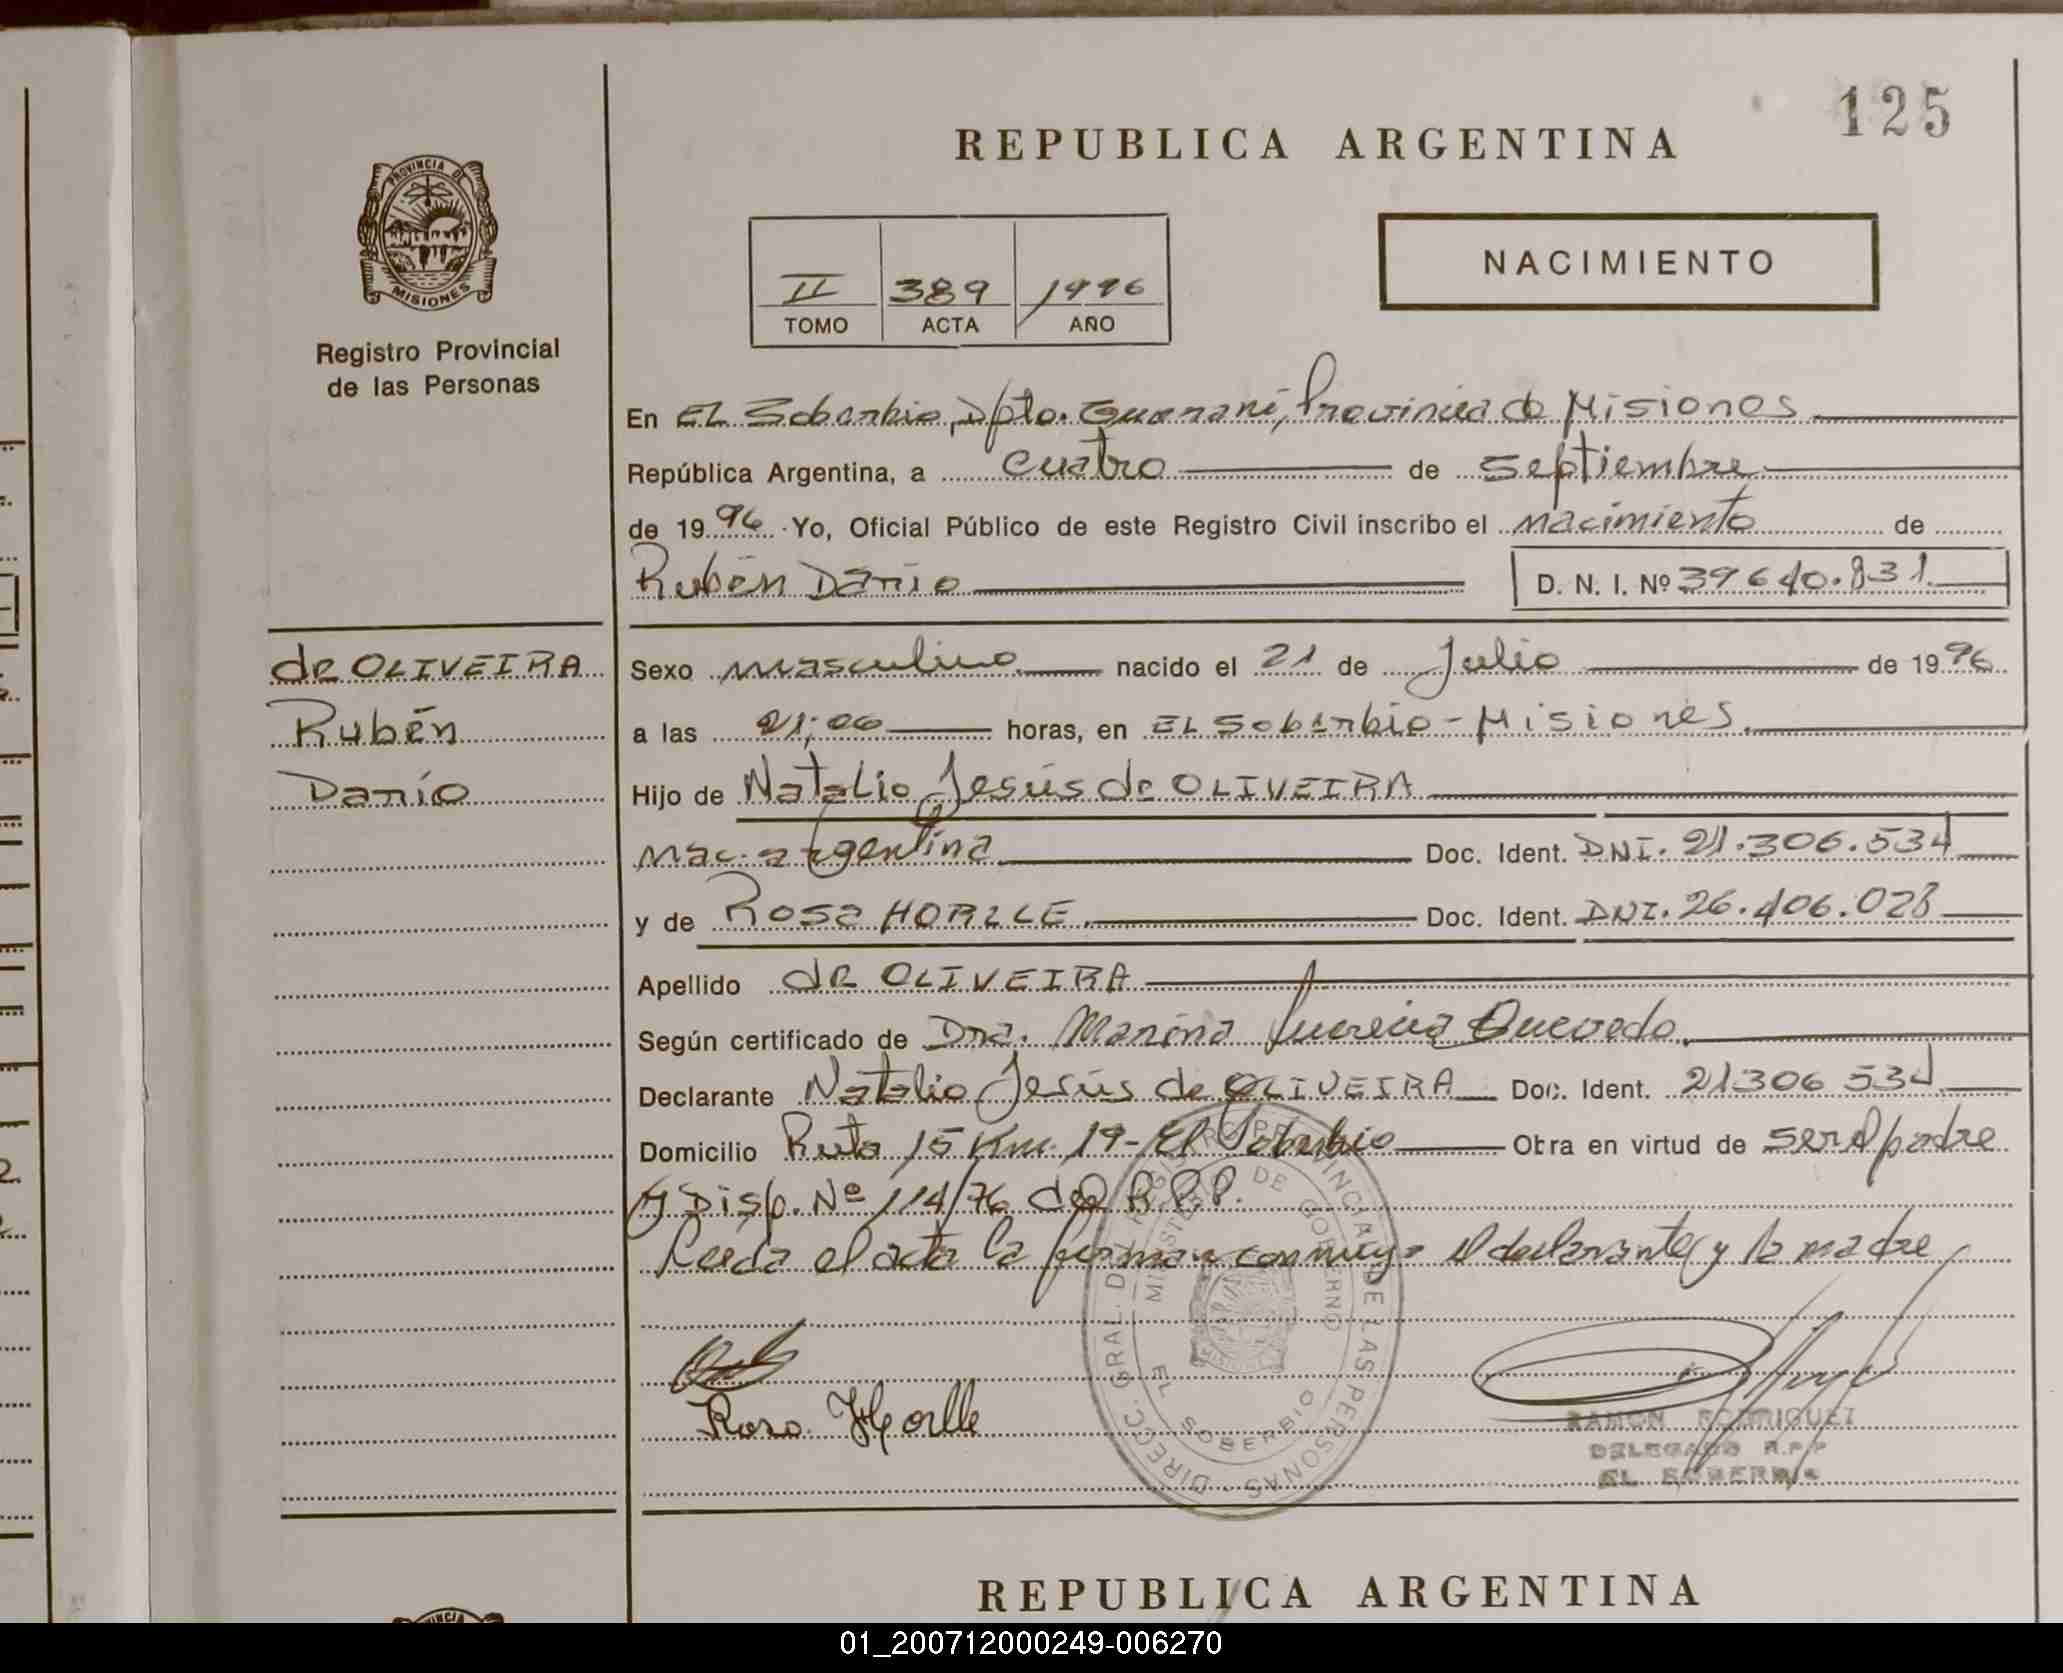 125
REPUBLICA ARGENTINA
PROVINCIA DE
MISIONES
Registro Provincial
de las Personas
II 389 1996
TOMO ACTA AÑO
NACIMIENTO
En EL Soberbio, Dpto. Guaraní, Provincia de Misiones
República Argentina, a cuatro de septiembre
de 1996 Yo, Oficial Público de este Registro Civil inscribo el nacimiento de
Rubén Darío D. N. I. Nº 39640.831
de OLIVEIRA
Rubén
Darío
Sexo masculino nacido el 21 de Julio de 1996
a las 21,00 horas, en EL Soberbio - Misiones.
Hijo de Natalio Jesús de OLIVEIRA
nac. argentina Doc. Ident. DNI. 21.306.534
y de Rosa HORLLE. Doc. Ident. DNI. 26.406.028
Apellido de OLIVEIRA
Según certificado de Dra. Marina Lucrecia Quevedo.
Declarante Natalio Jesús de OLIVEIRA Doc. Ident. 21306 534
Domicilio Ruta 15 Km. 19 - El Soberbio Obra en virtud de ser el padre
y Disp. Nº 114/76 del R.P.P.
Leída el acta la firman conmigo el declarante y la madre
DIRECC. GRAL. DEL REGISTRO PROVINCIAL DE LAS PERSONAS
MINISTERIO DE GOBIERNO
MISIONES
EL SOBERBIO
Rosa Horlle
RAMON RODRIGUEZ
DELEGADO R.P.P
EL SOBERBIO
REPUBLICA ARGENTINA
01_200712000249-006270